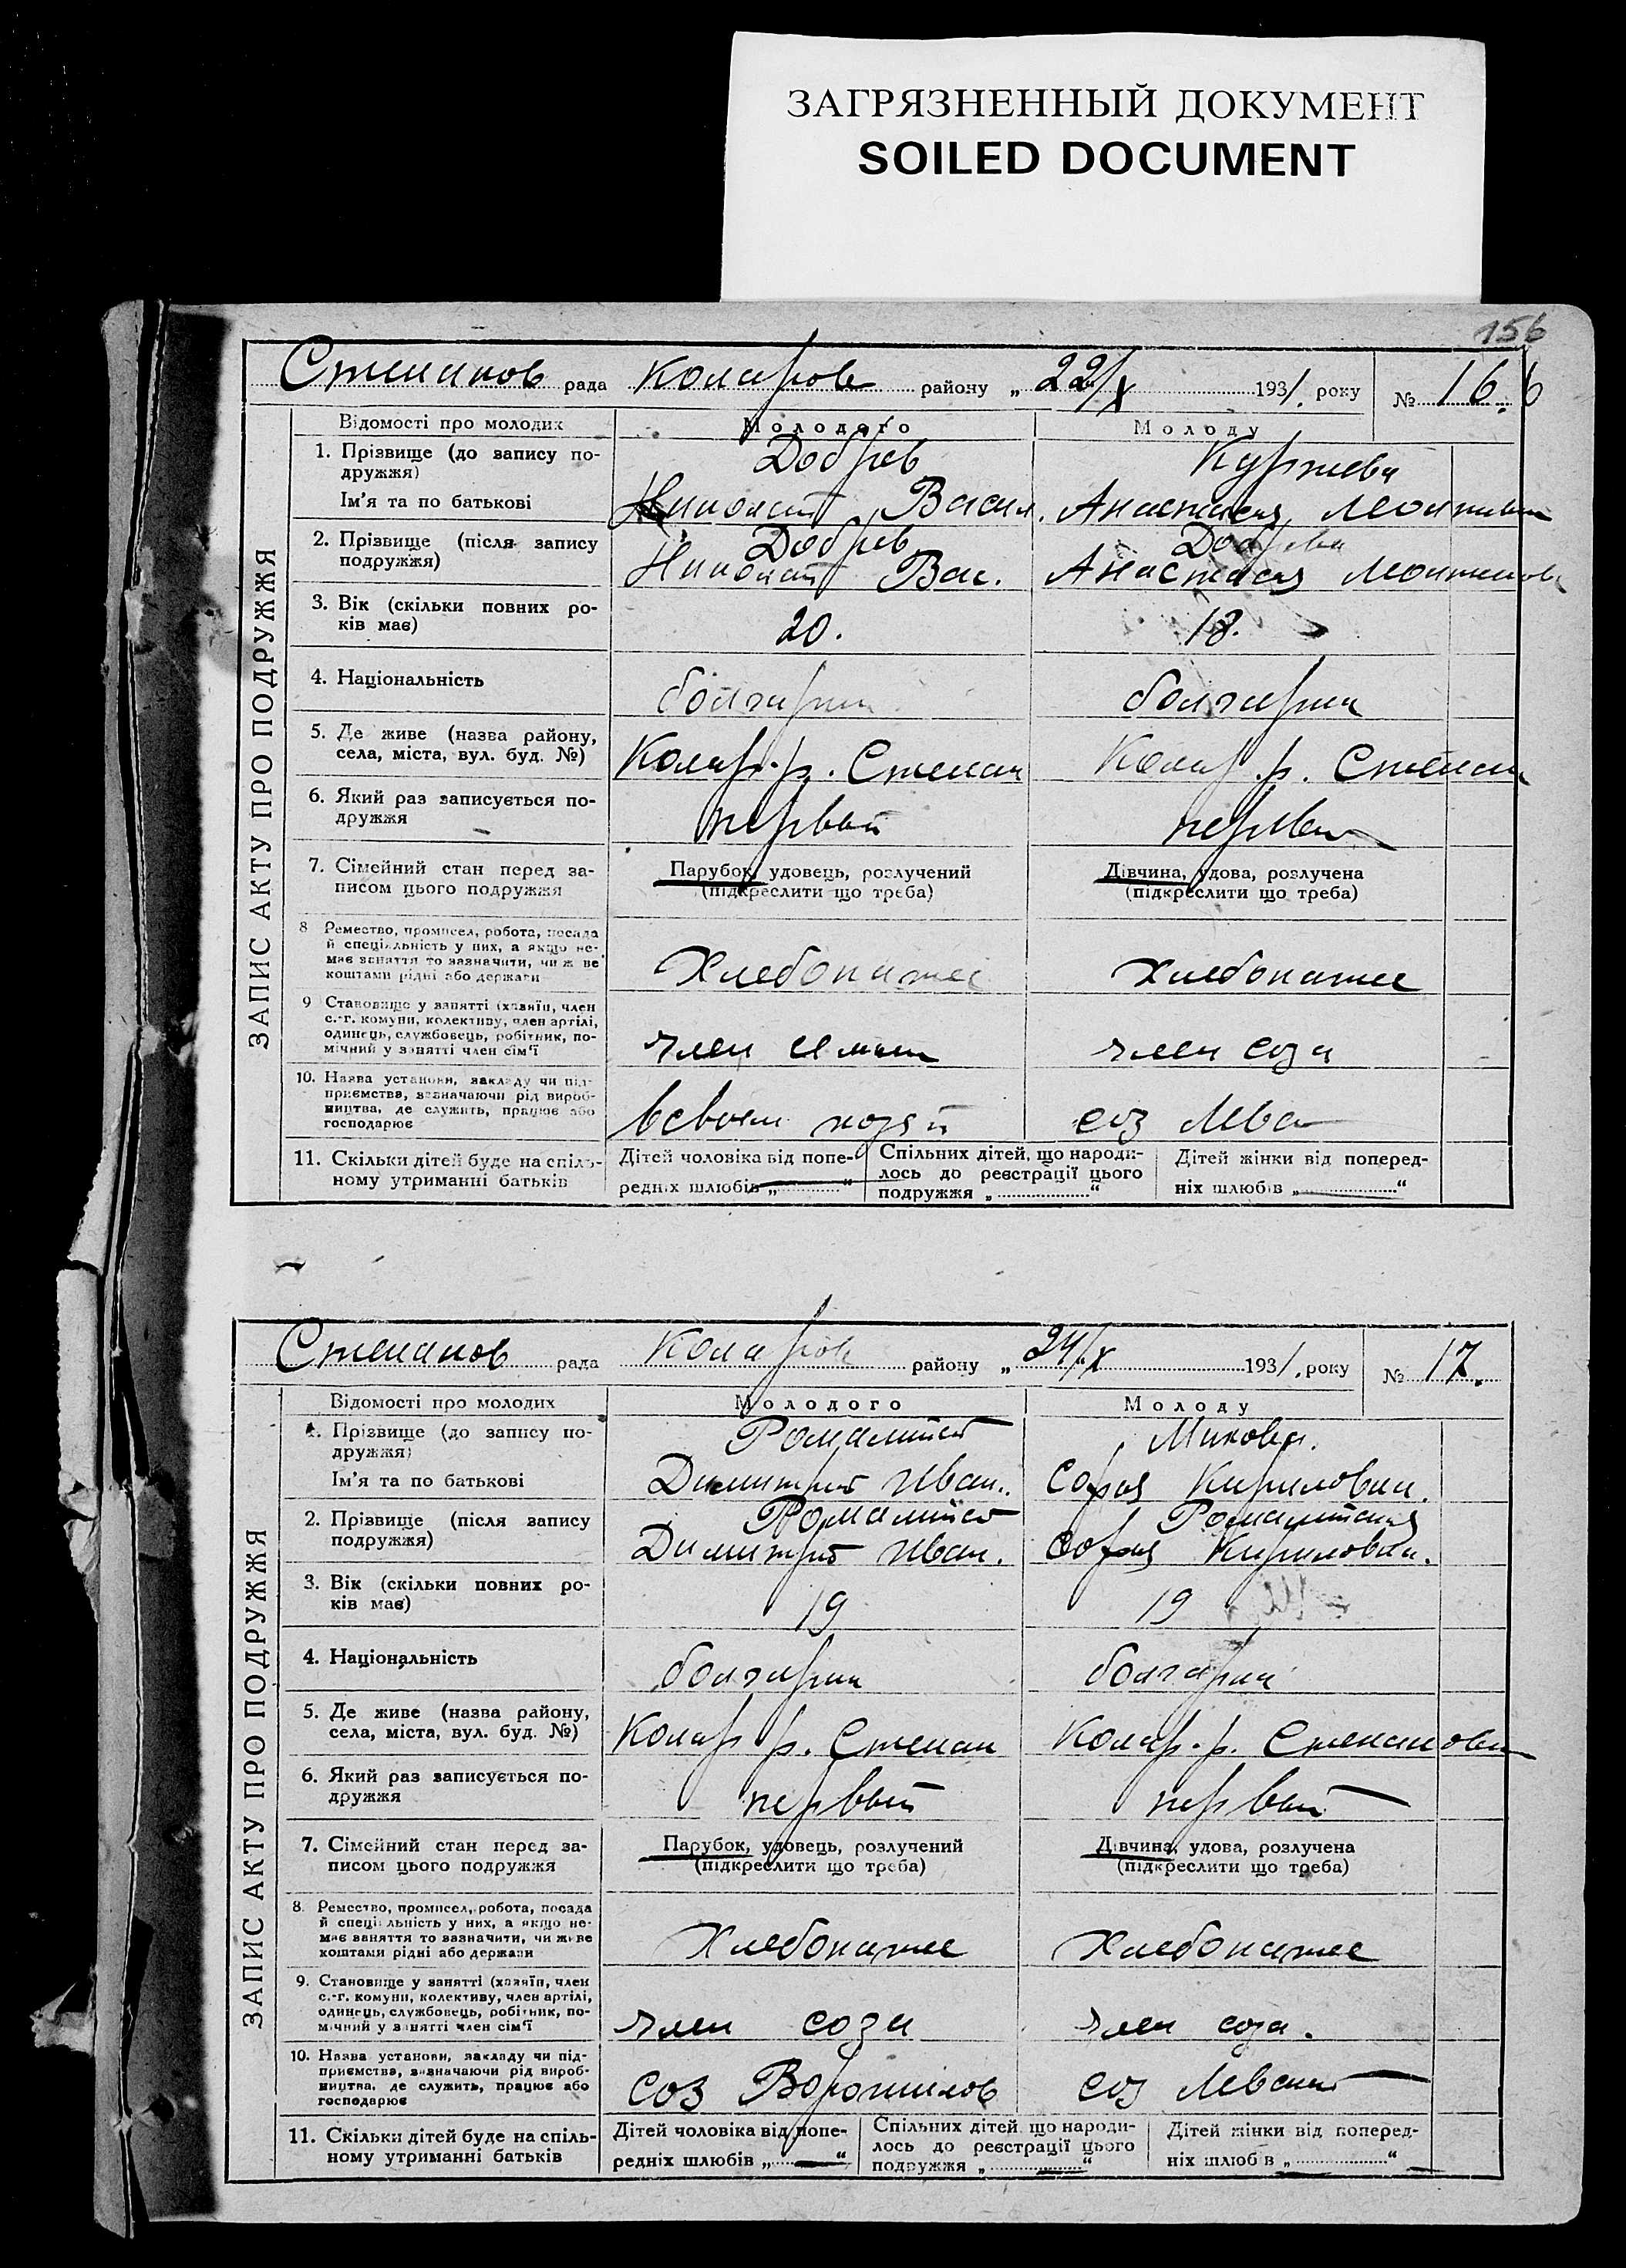 ЗАГРЯЗНЕННЫЙ ДОКУМЕНТ
SOILED DOCUMENT
156
Степанов рада Коларов району „ 22/X 1931. року № 16.
ЗАПИС АКТУ ПРО ПОДРУЖЖЯ
Відомості про молодих Молодого Молоду
1. Прізвище (до запису по-
дружжя)
Добрев
Ім'я та по батькові Васил. Анастасия
2. Прізвище (після запису
подружжя)
Добрев Добрева
Вас. Анастасия
3. Вік (скільки повних ро-
ків має)
20. 18.
4. Національність болгарин болгарин
5. Де живе (назва району,
села, міста, вул. буд. №)
Колар. р. Степан Колар. р. Степан
6. Який раз записується по-
дружжя
первый первый
7. Сімейний стан перед за-
писом цього подружжя
Парубок, удовець, розлучений
(підкреслити що треба)
Дівчина, удова, розлучена
(підкреслити що треба)
8 Ремество, промисел, робота, посада
й спеціяльність у них, а якщо не-
має заняття то зазначити, чи ж ве
коштами рідні або держави
Хлебопашес хлебопашес
9 Становище у занятті (хазяїн, член
с.-г. комуни, колективу, член артілі,
одинець, службовець, робітник, по-
мічний у занятті член сім'ї
член член соза
10. Назва установи, закладу чи під-
приємства, зазначаючи рід вироб-
ництва, де служить, працює або
господарює
всвоем соз
11. Скільки дітей буде на спіль-
ному утриманні батьків
Дітей чоловіка від попе-
редніх шлюбів „ “
Спільних дітей, що народи-
лось до реєстрації цього
подружжя „ “
Дітей жінки від поперед-
ніх шлюбів „ “
Степанов рада Коларов району „ 24/X 1931. року № 17.
ЗАПИС АКТУ ПРО ПОДРУЖЖЯ
Відомості про молодих Молодого Молоду
1. Прізвище (до запису по-
дружжя)
Минова.
Ім'я та по батькові Димитрий Иван. София Кириловна.
2. Прізвище (після запису
подружжя)
Димитрий Иван. София Кириловн.
3. Вік (скільки повних ро-
ків має)
19 19
4. Національність болгарин болгарин
5. Де живе (назва району,
села, міста, вул. буд. №)
Колар р. Степан Колар. р. Степановк
6. Який раз записується по-
дружжя
первый первый
7. Сімейний стан перед за-
писом цього подружжя
Парубок, удовець, розлучений
(підкреслити що треба)
Дівчина, удова, розлучена
(підкреслити що треба)
8. Ремество, промисел, робота, посада
й спеціяльність у них, а якщо не-
має заняття то зазначити, чи живе
коштами рідні або держави
Хлебопашес Хлебопашес
9. Становище у занятті (хазяїн, член
с.-г. комуни, колективу, член артілі,
одинець, службовець, робітник, по-
мічний у занятті член сім'ї
член соза член соза.
10. Назва установи, закладу чи під-
приємства, зазначаючи рід вироб-
ництва, де служить, працює або
господарює
соз Ворошилов соз
11. Скільки дітей буде на спіль-
ному утриманні батьків
Дітей чоловіка від попе-
редніх шлюбів „ “
Спільних дітей, що народи-
лось до реєстрації цього
подружжя „ “
Дітей жінки від поперед-
ніх шлюбів „ “